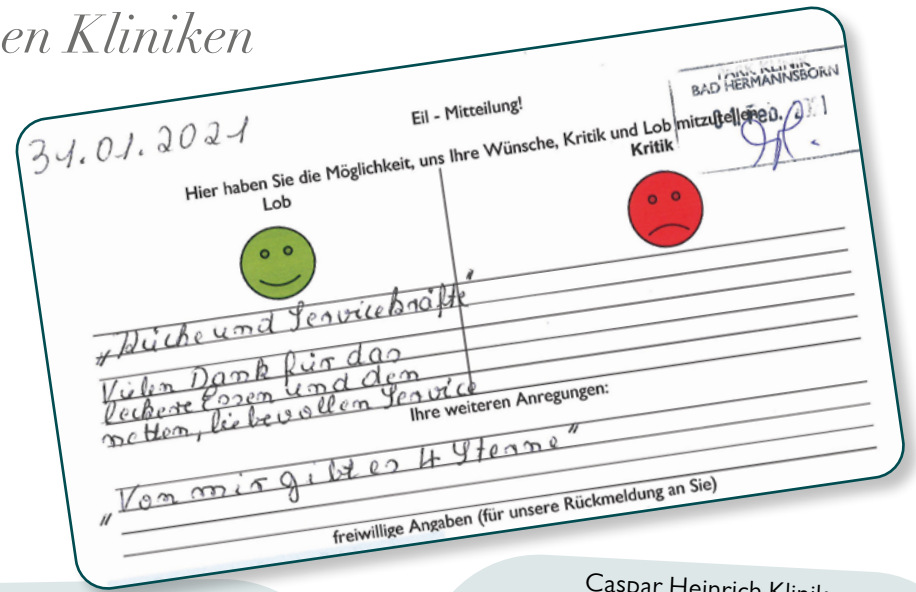 en Kliniken
31.01.2021
Eil - Mitteilung!
PARK KLINIK
BAD HERMANNSBORN
Hier haben Sie die Möglichkeit, uns Ihre Wünsche, Kritik und Lob mitzuteilen.
Lob
Kritik
„Küche und Servicekräfte"
Vielen Dank für das
leckere Essen und den
netten, liebevollen Service
Ihre weiteren Anregungen:
„Von mir gibt es 4 Sterne"
freiwillige Angaben (für unsere Rückmeldung an Sie)
Caspar Heinrich Klinik